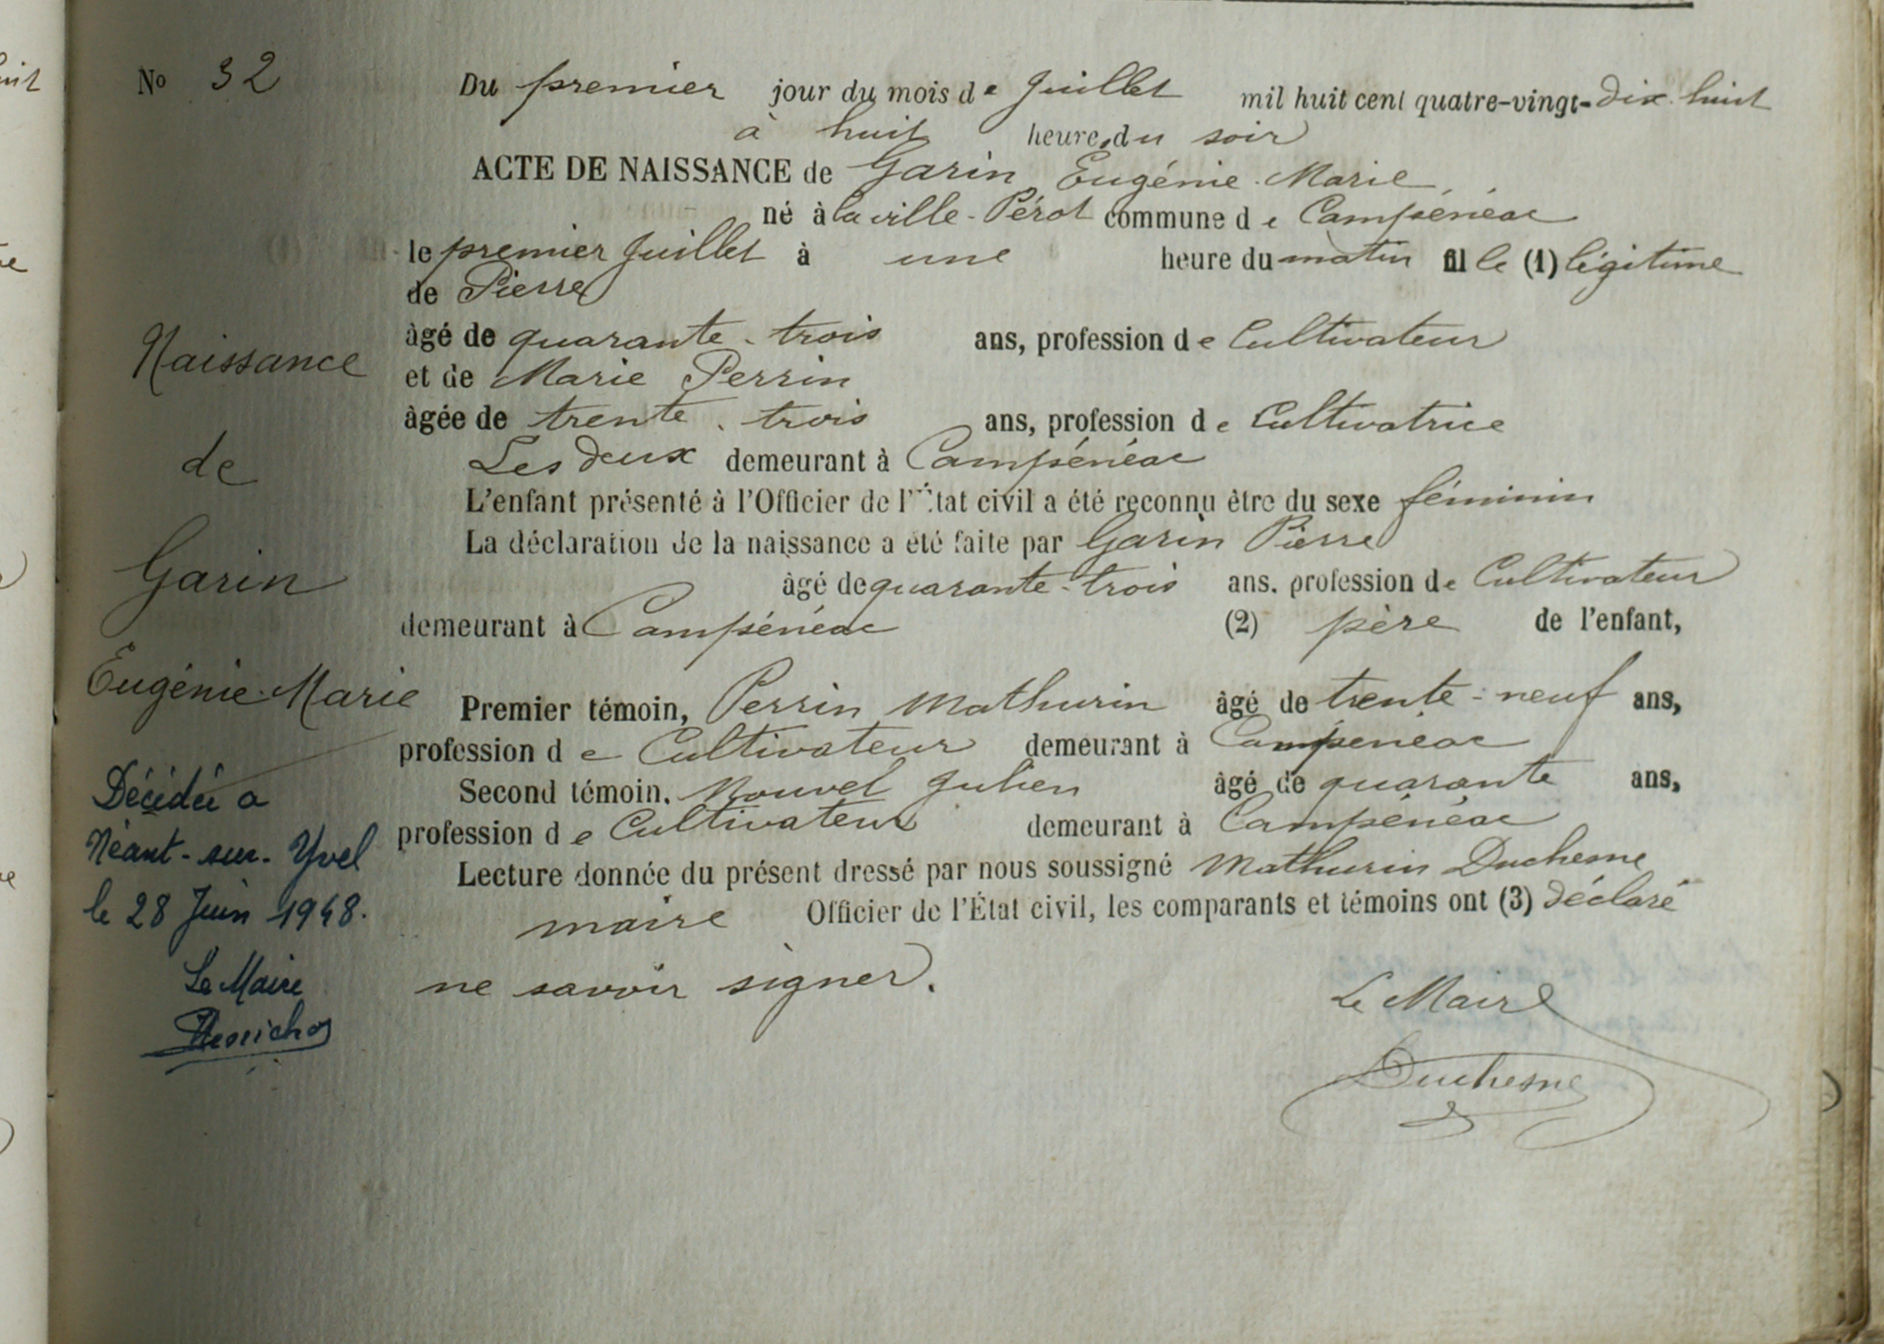 No 32
Du premier jour du mois de Juillet mil huit cent quatre-vingt-dix huit
à huit heures du soir
ACTE DE NAISSANCE de Garin Eugénie Marie,
né à la ville-Pérot commune de Campénéac
le premier Juillet à une heure du matin fille (1) légitime
de Pierre
âgé de quarante-trois ans, profession de Cultivateur
et de Marie Perrin
âgée de trente-trois ans, profession de Cultivatrice
Les deux demeurant à Campénéac
L'enfant présenté à l'Officier de l'État civil a été reconnu être du sexe féminin
La déclaration de la naissance a été faite par Garin Pierre
âgé de quarante-trois ans, profession de Cultivateur
demeurant à Campénéac (2) père de l'enfant,
Premier témoin, Perrin Mathurin âgé de trente-neuf ans,
profession de Cultivateur demeurant à Campénéac
Second témoin, Nouvel Julien âgé de quarante ans,
profession de Cultivateur demeurant à Campénéac
Lecture donnée du présent dressé par nous soussigné Mathurin Duchesne
maire Officier de l'État civil, les comparants et témoins ont (3) déclaré
ne savoir signer.
Le Maire
Duchesne
Naissance
de
Garin
Eugénie Marie
Décédée à
Néant-sur-Yvel
le 28 Juin 1948.
Le Maire